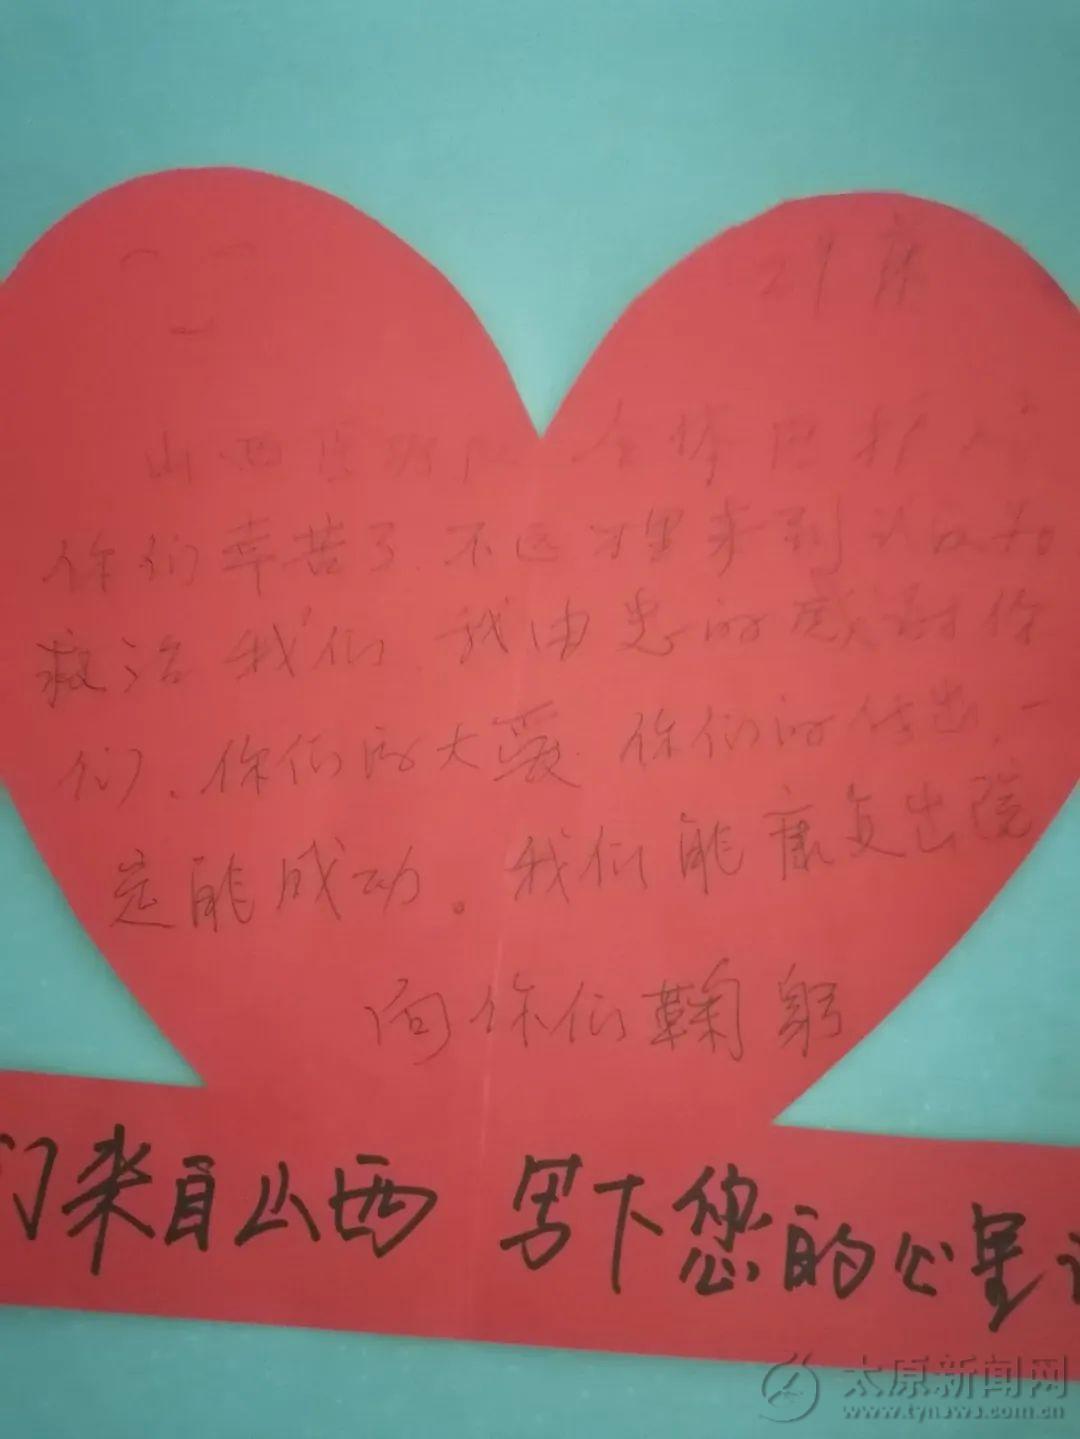 29床
山西医疗队全体医护
你们辛苦了.不远万里来到武汉
救治我们.我由忠的感谢你
们、你们的大爱.你们的付出.一
定能成功。我们能康复出院
向你们鞠躬
们来自山西 写下您的心里
太原新闻网
www.tynews.com.cn